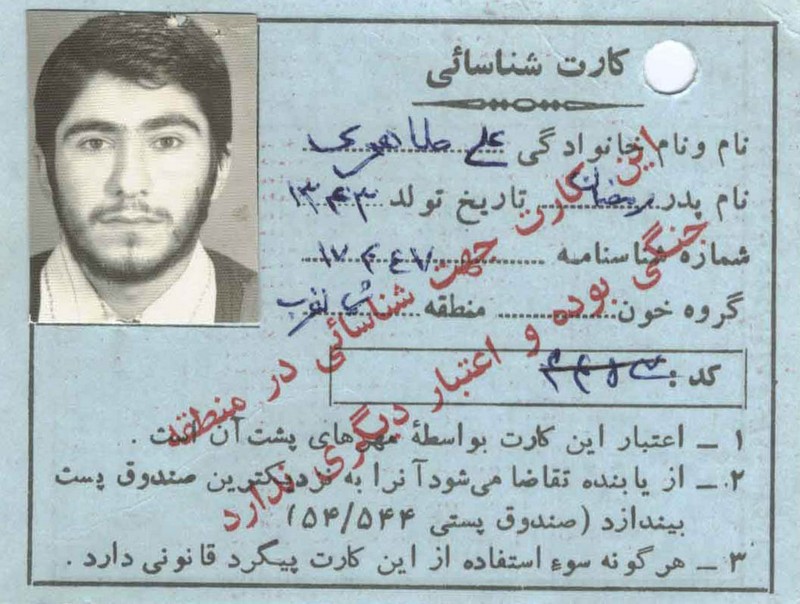 کارت شناسائی
نام ونام خانوادگی علی طاهری
نام پدر رمضان تاریخ تولد ۱۳۴۳
شماره شناسنامه ۱۷۴۶۷
گروه خون منطقه
کد :
۱ ــ اعتبار این کارت بواسطهٔ مهرهای پشت آن است .
۲ ــ از یابنده تقاضا می‌شود آنرا به نزدیکترین صندوق پست
بیندازد (صندوق پستی ۵۴/۵۴۴)
۳ ــ هرگونه سوءِ استفاده از این کارت پیگرد قانونی دارد .
این کارت جهت شناسائی در منطقه
جنگی بوده و اعتبار دیگری ندارد